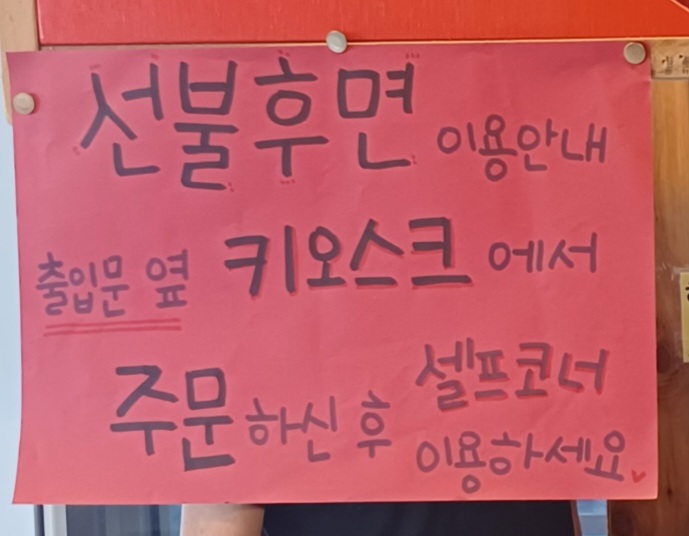 선불후면 이용안내
출입문 옆 키오스크 에서
주문 하신 후 셀프코너
이용하세요